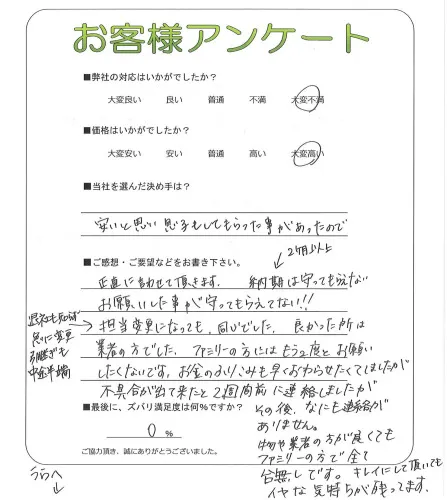 お客様アンケート
■弊社の対応はいかがでしたか？
大変良い 良い 普通 不満 大変不満
■価格はいかがでしたか？
大変安い 安い 普通 高い 大変高い
■当社を選んだ決め手は？
安いと思い 息子もしてもらった事があったので
■ご感想・ご要望などをお書き下さい。
2ヶ月以上
正直に言わせて頂きます。 納期は守ってもらえない
お願いした事が守ってもらえてない!!
担当変更になっても、同じでした。良かった所は
業者の方でした。ファミリーの方にはもう2度とお願い
したくないです。お金のふりこみも早くおわらせたくてしましたが
不具合が出て来たと2週間前に連絡しましたが
急に変更
引継ぎも
中途半端
■最後に、ズバリ満足度は何％ですか？
0 ％
その後、なにも連絡が
ありません。
物や業者の方が良くても
ファミリーの方で全て
台無しです。キレイにして頂いても
イヤな気持ちが残ってます。
ご協力頂き、誠にありがとうございました。
うらへ